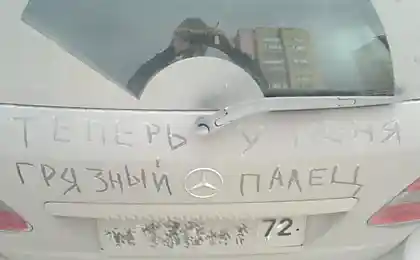 ТЕПЕРЬ У МЕНЯ
ГРЯЗНЫЙ ПАЛЕЦ
72.